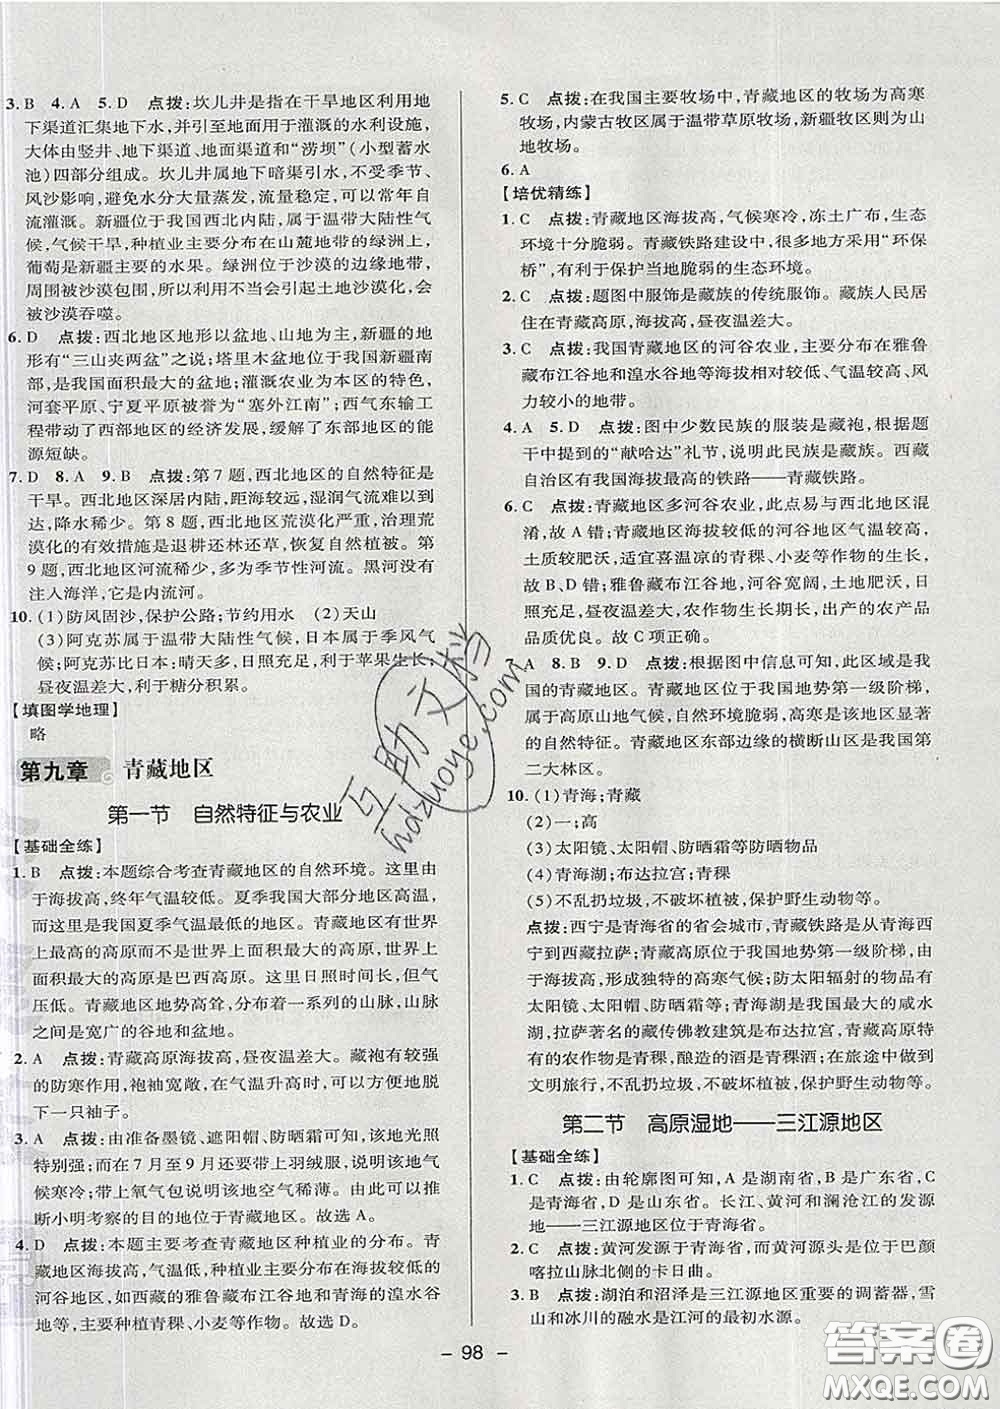 3. B　4. A　5. D　点拨：坎儿井是指在干旱地区利用地
下渠道汇集地下水，并用于灌溉的水利设施，
大体由竖井、地下渠道、地面渠道和“涝坝”(小型蓄水
池)四部分组成。坎儿井属地下暗渠引水，不受季节、
风沙影响，避免水分大量蒸发，流量稳定，可以常年自
流灌溉。新疆位于我国西北内陆，属于温带大陆性气
候，气候干旱，种植业主要分布在山麓地带的绿洲上，
葡萄是新疆主要的水果。绿洲位于沙漠的边缘地带，
周围被沙漠包围，所以不当会引起土地沙漠化，会
被沙漠吞噬。
6. D　点拨：西北地区地形以盆地、山地为主，新疆的地
形有“三山夹两盆”之说；塔里木盆地位于新疆南
部，是我国面积最大的盆地；灌溉农业为本区的特色，
河套平原、宁夏平原被誉为“塞外江南”；西气东输工
程带动了西部地区的经济发展，缓解了东部地区的能
源短缺。
7. D　8. A　9. B　点拨：第7题，西北地区的自然特征是
干旱。西北地区深居内陆，距海较远，湿润气流难以到
达，降水稀少。第8题，西北地区荒漠化严重，治理荒
漠化的有效措施是退耕还林还草，恢复自然植被。第
9题，西北地区河流稀少，多为季节性河流。黑河没有
注入海洋，它是内流河。
10. (1)防风固沙，保护公路；节约用水　(2)天山
(3)阿克苏属于温带大陆性气候，日本属于季风气
候，阿克苏比日本：晴天多，日照强，利于苹果生长；
昼夜温差大，利于糖分积累。
【填图学地理】
略
第九章　青藏地区
第一节　自然特征与农业
【基础全练】
1. B　点拨：本题综合考查青藏地区的自然环境。这里由
于海拔高，终年气温较低。夏季我国大部分地区气温较
高，这里是我国夏季气温最低的地区。青藏高原有世界
上最高的高原而不是世界上面积最大的高原，世界上
面积最大的高原是巴西高原。这里日照时间长，但气
压低。青藏地区地势高耸，分布着一系列的山脉，山脉
之间是宽广的谷地和盆地。
2. A　点拨：青藏高原海拔高，昼夜温差大。藏袍有较强
的防寒作用，袍袖宽敞，在气温升高时，可以方便地脱
下一只袖子。
3. A　点拨：由准备墨镜、遮阳帽、防晒霜可知，该地光照
特别强；而在7月至9月还要带上羽绒服，说明该地气
候寒冷；带上氧气包说明该地空气稀薄。由此可以推
断小明考察的目的地位于青藏地区。故选A。
4. D　点拨：本题主要考查青藏地区种植业的分布。青
藏地区海拔高，气温低，种植业主要分布在海拔较低的
河谷地区，如西藏的雅鲁藏布江谷地和青海的湟水谷
地等，主要种植青稞、小麦等作物。故选D。
5. C　点拨：在我国主要牧场中，青藏地区的牧场为高寒
牧场，内蒙古牧区属于温带草原牧场，新疆牧区则为山
地牧场。
6. A
【培优精练】
1. C　点拨：青藏地区海拔高，气候寒冷，冻土广布，生态
环境十分脆弱。青藏铁路建设中，很多地方采用“环保
桥”，有利于保护当地脆弱的生态环境。
2. C　点拨：题图中服饰是藏族的传统服饰。藏族人民居
住在青藏高原，海拔高，昼夜温差大。
3. C　点拨：我国青藏地区的河谷农业，主要分布在雅鲁
藏布江谷地和湟水谷地等海拔相对较低、气温较高、风
力较小的地带。
4. A　5. D　点拨：图中少数民族的服装是藏袍，根据题
干中提到的“献哈达”礼节，说明这是藏族。西藏
自治区有我国海拔最高的铁路——青藏铁路。
6. C　点拨：青藏地区多河谷农业，此点易与西北地区混
淆，故A错；青藏地区海拔较低的河谷地区气温较高，
土质较肥沃，适宜喜温凉的青稞、小麦等作物的生长，
故B、D错；雅鲁藏布江谷地，河谷宽阔，土地肥沃，日照
充足，昼夜温差大，农作物生长期长，出产的农产品
品质优良。故C项正确。
A　8. B　9. D　点拨：根据图中信息可知，此区域是我
国的青藏地区。青藏地区位于我国地势第一级阶梯，
属于高原山地气候，自然环境脆弱，高寒是该地区显著
的自然特征。青藏地区东部边缘的横断山区是我国第
二大林区。
10. (1)青海；青藏
(2)一；高
(3)太阳镜、太阳帽、防晒霜等防晒物品
(4)青海湖；布达拉宫；青稞
(5)不乱扔垃圾，不破坏植被，保护野生动物等。
点拨：西宁是青海省的省会城市，青藏铁路是从青海西
宁到西藏拉萨；青藏高原位于我国地势第一级阶梯，由
于海拔高，形成独特的高寒气候；防太阳辐射的物品有
太阳镜、太阳帽、防晒霜等；青海湖是我国最大的咸水
湖，拉萨著名的藏传佛教建筑是布达拉宫，青藏高原有
特色的农作物是青稞，酿造的酒是青稞酒；在旅途中做到
文明旅行，不乱扔垃圾，不破坏植被，保护野生动物等。
第二节　高原湿地——三江源地区
【基础全练】
1. C　点拨：由轮廓图可知，A是湖南省，B是广东省，C
是青海省，D是山东省。长江、黄河和澜沧江的发源
地——三江源地区位于青海省。
2. C　点拨：黄河发源于青海省，而黄河源头是位于巴颜
喀拉山脉北侧的卡日曲。
3. B　点拨：湖泊和沼泽是三江源地区重要的调蓄器，雪
山和冰川的融水是江河的最初水源。
- 98 -
互助文档
hdzuoye.com
答案圈
MXQE.COM